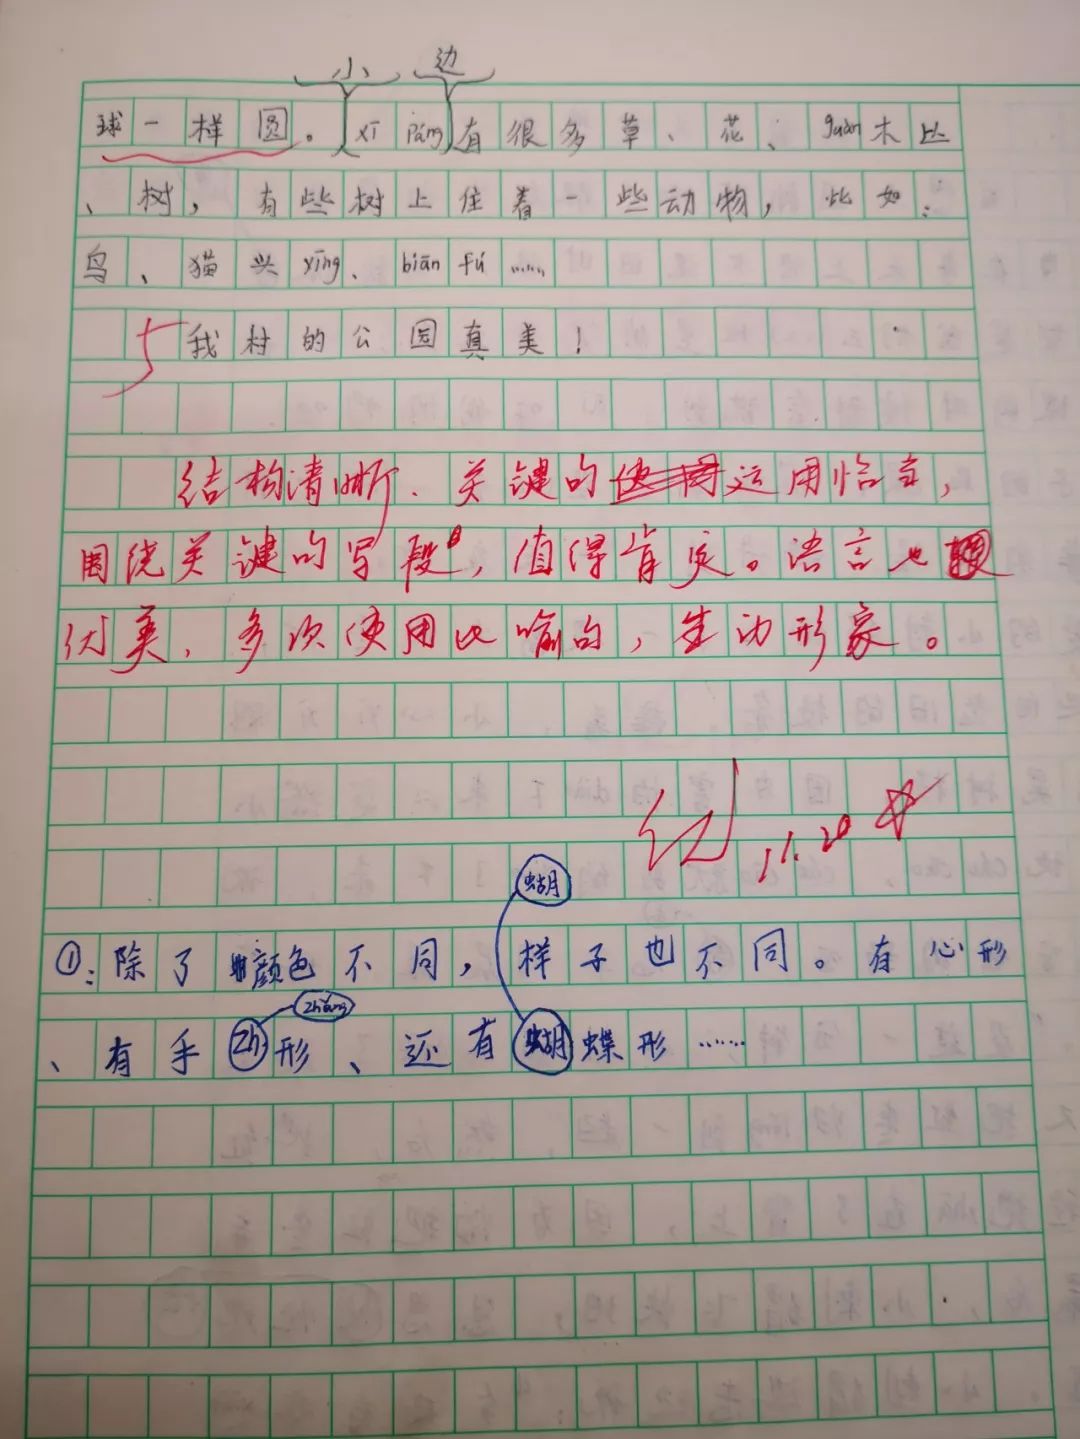 小 边
球一样圆。xī páng有很多草、花、guàn木丛
、树，有些树上住着一些动物，比如：
鸟、猫头yīng、biān fú……
我村的公园真美！
结构清晰．关键句运用恰当，
围绕关键句写段，值得肯定。语言也很
优美，多次使用比喻句，生动形象。
优 11.20 ☆
蝴
①：除了颜色不同，样子也不同。有心形
zhǎng
、有手zh形、还有蝴蝶形……